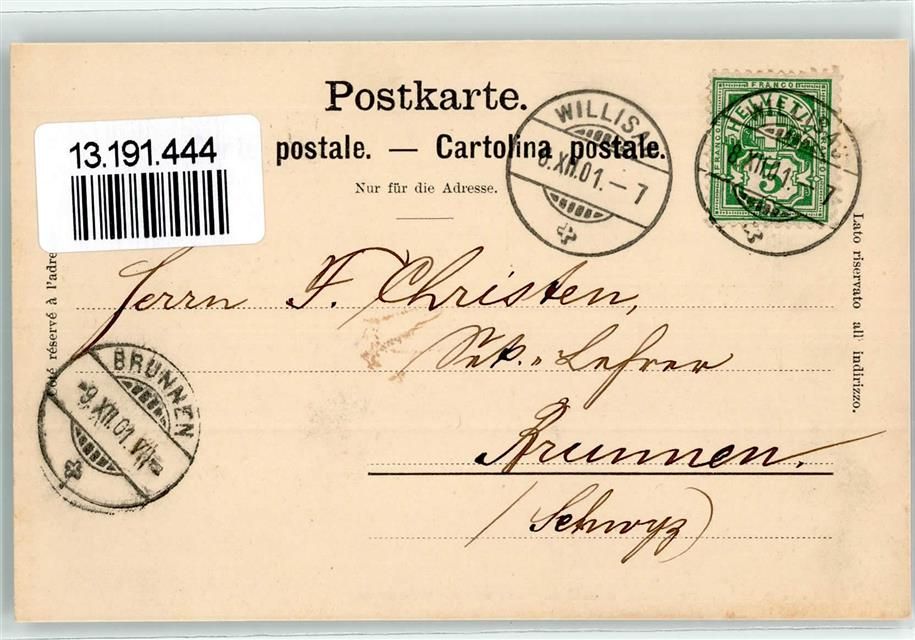 Postkarte.
13.191.444
postale. — Cartolina postale.
Nur für die Adresse.
WILLISAU
8.XII.01.–7
FRANCO
HELVETIA
FRANCO
5
WILLISAU
8.XII.01.–7
côté réservé à l'adre
Lato riservato all' indirizzo.
Herrn F. Christen,
Sek.-Lehrer
Brunnen.
(Schwyz)
BRUNNEN
-9.XII.01.VII-